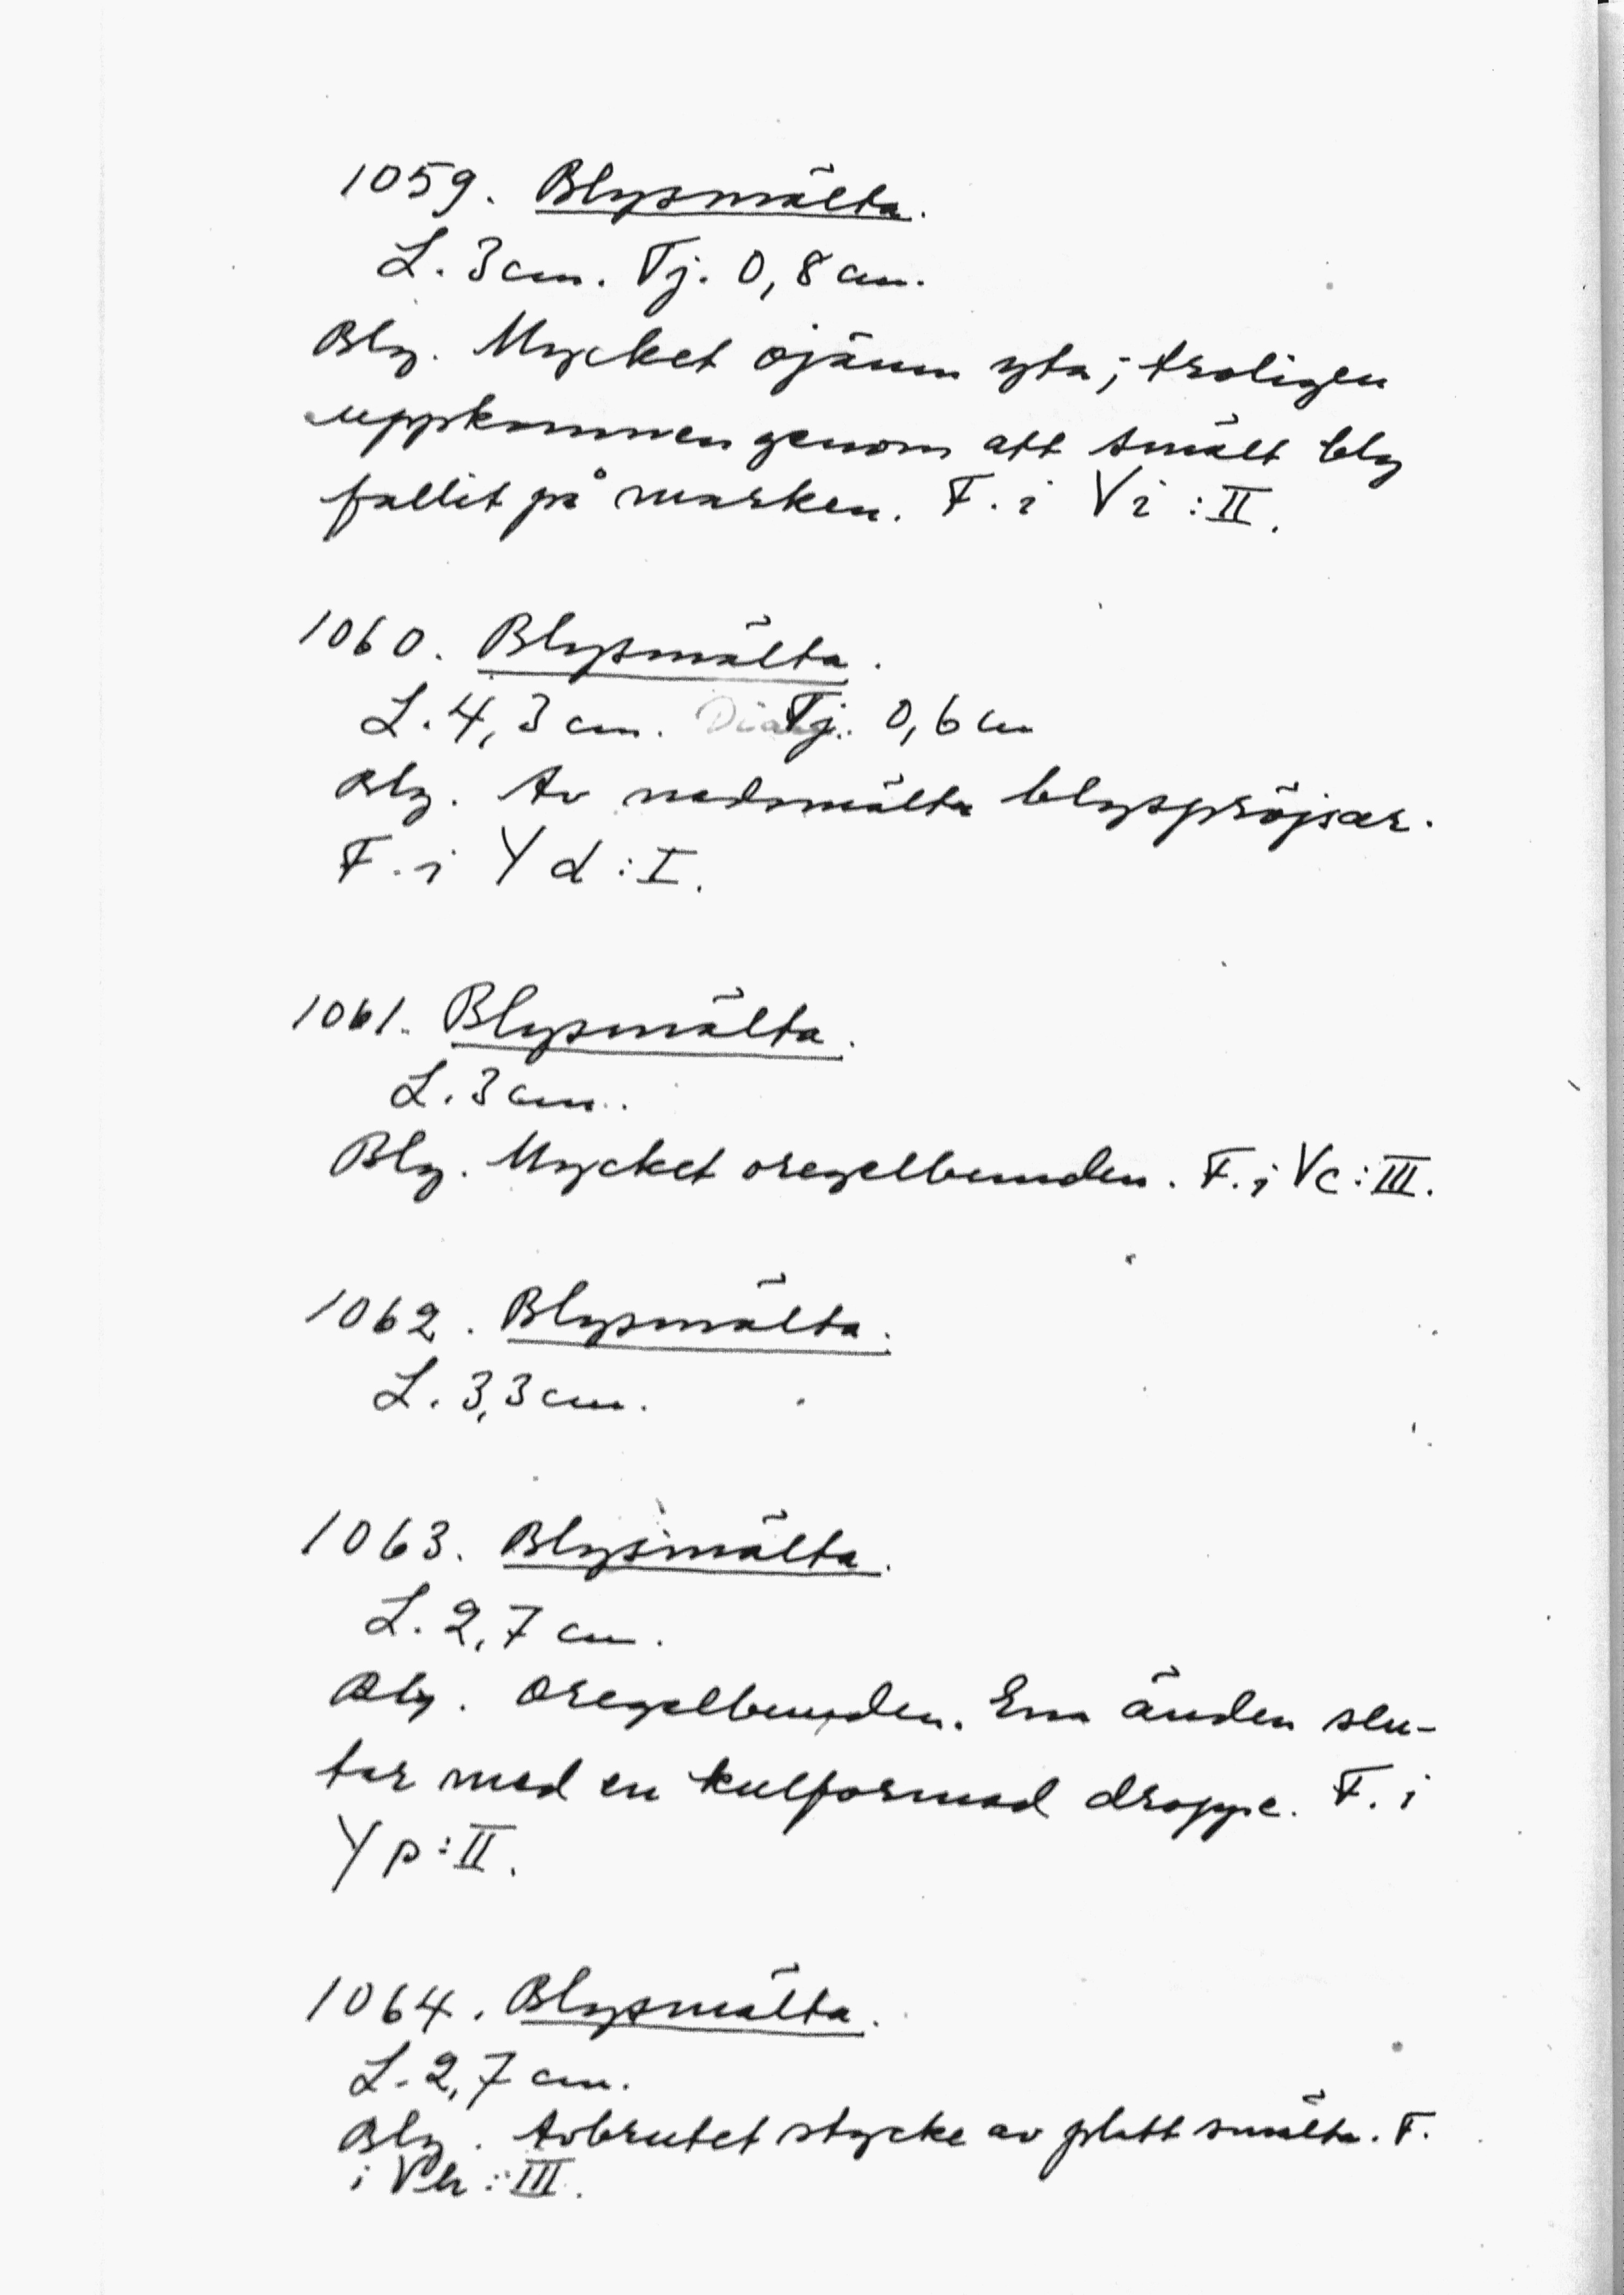 1059. Blysmälta.
L. 3 cm. Tj. 0,8 cm.
Bly. Mycket ojämn yta; troligen
uppkommen genom att smält bly
fallit på marken. F. i Vi:II.
1060. Blysmälta.
L. 4,3 cm. Tj. 0,6 cm
Bly. Av nedsmälta blyspröjsar.
F. i Yd:I.
1061. Blysmälta.
L. 3 cm.
Bly. Mycket oregelbunden. F. i Vc:III.
1062. Blysmälta.
L. 3,3 cm.
1063. Blysmälta.
L. 2,7 cm.
Bly. Oregelbunden. Ena änden slu-
tar med en kulformad droppe. F. i
Yp:II.
1064. Blysmälta.
L. 2,7 cm.
Bly. Avbrutet stycke av platt smälta. F.
i Vh:III.